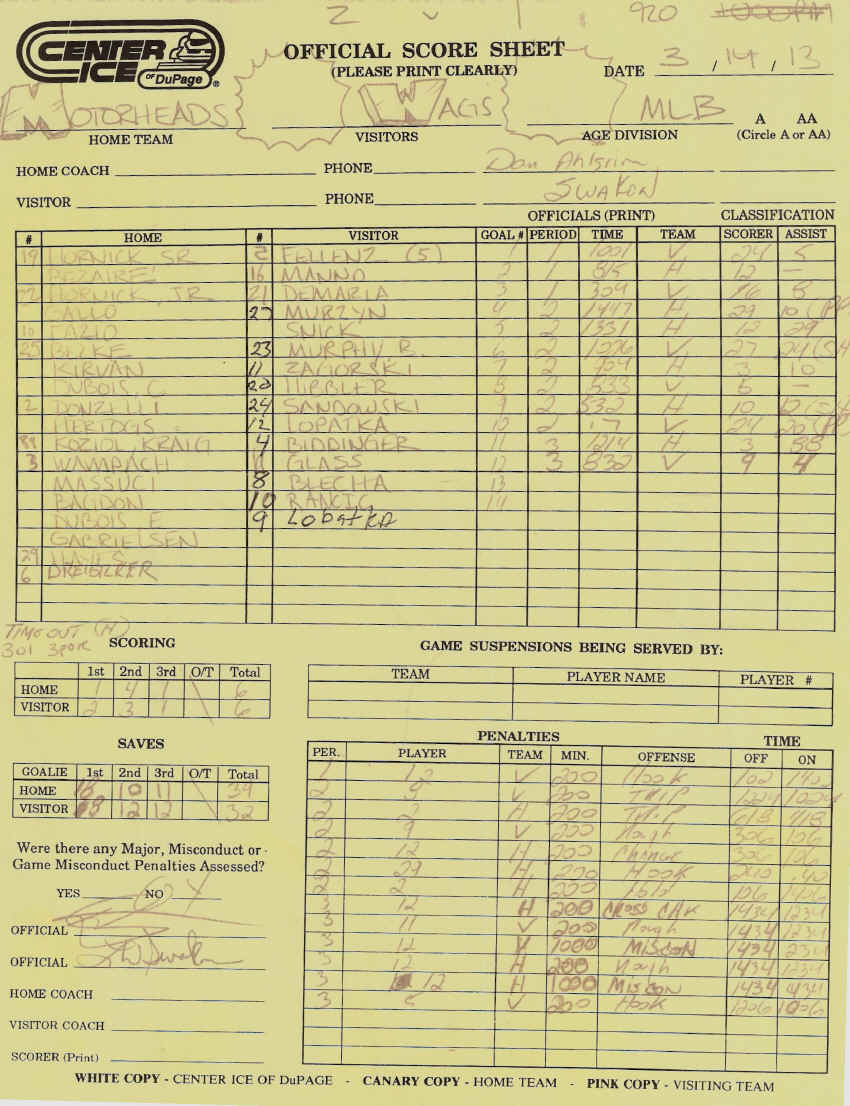 2 v | 920 1000PM
CENTER ICE OF DuPage ®
OFFICIAL SCORE SHEET
(PLEASE PRINT CLEARLY)
DATE 3 / 14 / 13
MOTORHEADS WAGS MLB A AA
HOME TEAM VISITORS AGE DIVISION (Circle A or AA)
HOME COACH PHONE Dan Ahlgrim
VISITOR PHONE SWAKON
OFFICIALS (PRINT) CLASSIFICATION
# HOME # VISITOR GOAL # PERIOD TIME TEAM SCORER ASSIST
19 HORNICK SR 2 FELLENZ (5) 1 1 1001 V 24 5
BEZAIRE 16 MANNO 2 1 815 H 12 —
22 HORNICK, JR 21 DEMARIA 3 1 309 V 16 8
GALLO 27 MURZYN 4 2 1447 H 29 10 (PP
10 FAZIO SNICK 5 2 1331 H 12 29
25 BELKE 23 MURPHY B. 6 2 1226 V 27 24 (SH
KIRVAN 11 ZAGORSKI 7 2 H 3 10
DUBOIS, C 20 HIBBLER 8 2 533 V 5 —
2 DONZELLI 24 SANDOWSKI 9 2 532 H 10
HERTOGS 12 LOPATKA 10 2 .7 V 24 20 (PP
88 KOZIOL, KRAIG 4 BIDDINGER 11 3 1214 H 3 88
3 WAMPACH 11 GLASS 12 3 832 V 9 4
MASSUCI 8 BLECHA 13
BAGDON 10 RANCIC 14
DUBOIS E 9 Lobatka
GABRIELSEN
29 HAYES
6 DREIBILKER
TIME OUT (H)
301 3POR
SCORING
1st 2nd 3rd O/T Total
HOME 1 4 1 \ 6
VISITOR 2 3 1 \ 6
GAME SUSPENSIONS BEING SERVED BY:
TEAM PLAYER NAME PLAYER #
SAVES
GOALIE 1st 2nd 3rd O/T Total
HOME 10 11 \ 39
VISITOR 8 12 12 \ 32
Were there any Major, Misconduct or
Game Misconduct Penalties Assessed?
YES NO
OFFICIAL
OFFICIAL
HOME COACH
VISITOR COACH
SCORER (Print)
PENALTIES TIME
PER. PLAYER TEAM MIN. OFFENSE OFF ON
1 12 V 200 Hook 102
2 9 V 200 TRIP 1224 1024
2 2 H 200 TRIP 618 418
2 9 V 200 Rough 306 106
2 12 H 200 Change 306 106
2 29 H 200 Hook 240 .40
2 2 H 200 Hold 106 1406
3 12 H 200 CROSS CHK 1434 1234
3 11 V 200 Rough 1434 1234
3 12 V 1000 MISCON 1434 234
3 12 H 200 Rough 1434 1234
3 12 H 1000 MISCON 1434 434
3 5 V 200 HOOK 1206 1006
WHITE COPY - CENTER ICE OF DuPAGE - CANARY COPY - HOME TEAM - PINK COPY - VISITING TEAM